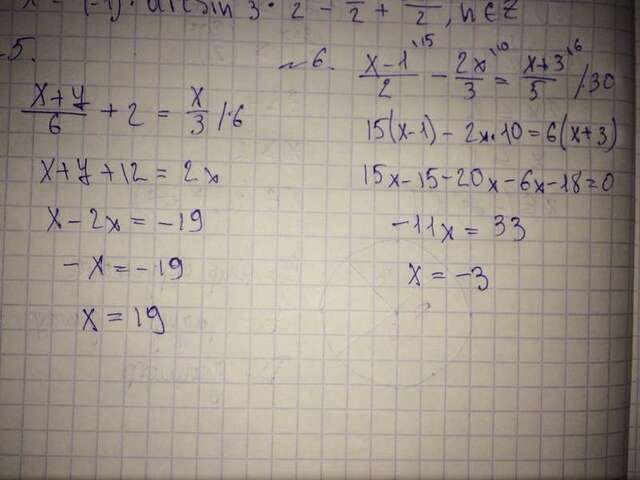 5.
(x+7)/6 + 2 = x/3 /·6
x+7+12=2x
x-2x=-19
-x=-19
x=19
№6.
(x-1)/2 ·15 - 2x/3 ·10 = (x+3)/5 ·6 /30
15(x-1) - 2x·10=6(x+3)
15x-15-20x-6x-18=0
-11x=33
x=-3